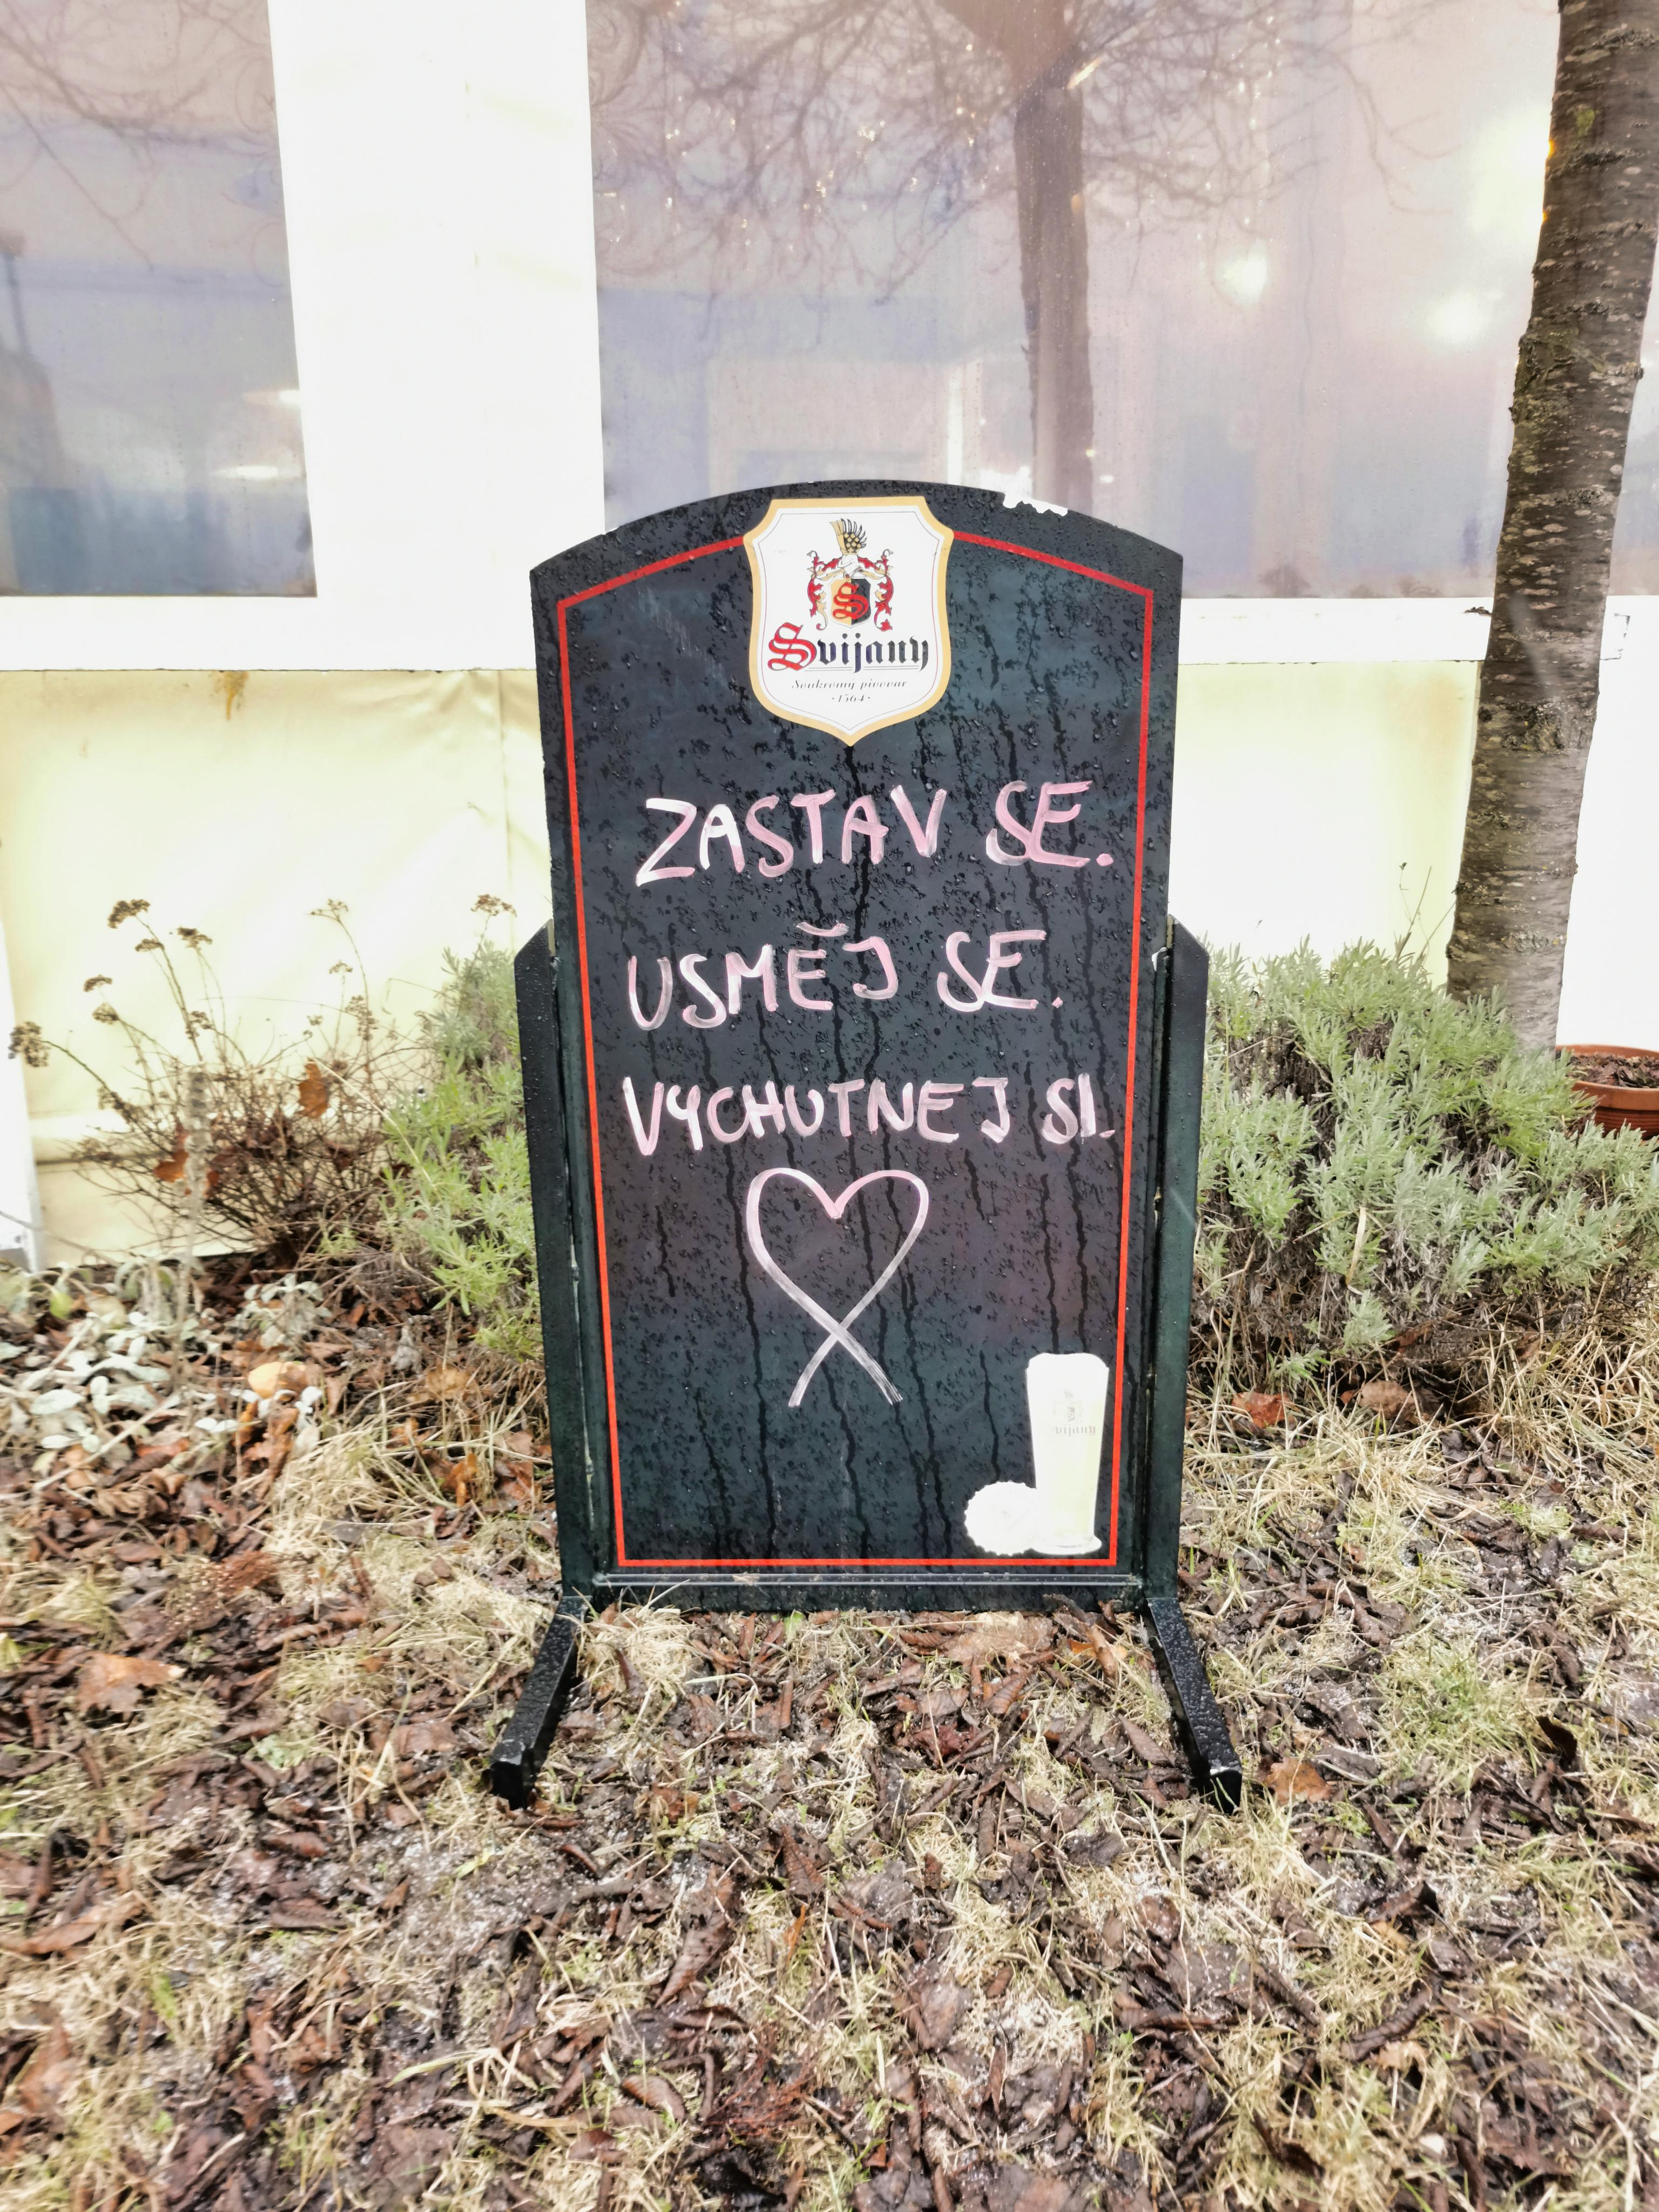 Svijany
Soukromý pivovar
·1564·
ZASTAV SE.
USMĚJ SE.
VYCHUTNEJ SI.